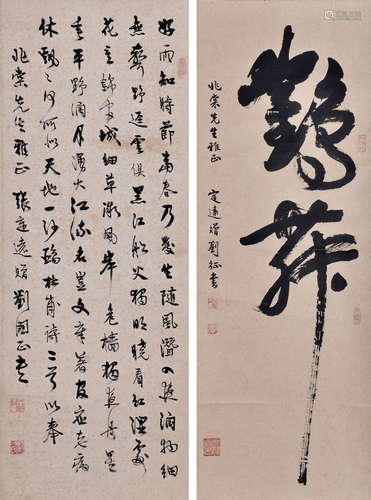 鶴舞
兆棠先生雅正
定遠贈劉征書
好雨知時節當春乃發生隨風潛入夜潤物細
無聲野逕雲俱黑江船火獨明曉看紅濕處
花重錦官城細草微風岸危檣獨夜舟星
垂平野闊月湧大江流名豈文章著官應老病
休飄飄何所似天地一沙鷗杜甫詩二首以奉
兆棠先生雅正張定遠贈劉國正書